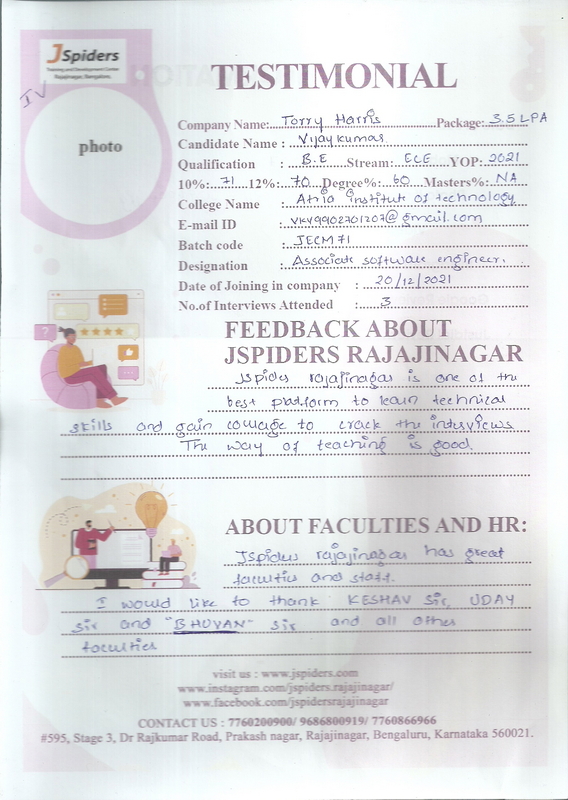 JSpiders
Training and Development Center
Rajajinagar, Bengaluru.
IV
TESTIMONIAL
photo
Company Name: Torry Harris Package: 3.5 LPA
Candidate Name : Vijaykumar
Qualification : B.E Stream: ECE YOP: 2021
10%: 71 12%: 70 Degree%: 60 Masters%: NA
College Name : Atria institute of technology
E-mail ID : vky9902701207@gmail.com
Batch code : JECM71
Designation : Associate software engineer.
Date of Joining in company : 20/12/2021
No.of Interviews Attended : 3
FEEDBACK ABOUT
JSPIDERS RAJAJINAGAR
Jspiders rajajinagar is one of the
best platform to learn technical
skills and gain courage to crack the interviews
The way of teaching is good.
ABOUT FACULTIES AND HR:
Jspiders rajajinagar has great
faculties and staff.
I would like to thank KESHAV Sir, UDAY
Sir and "BHUVAN" sir and all other
faculties
visit us : www.jspiders.com
www.instagram.com/jspiders.rajajinagar/
www.facebook.com/jspidersrajajinagar
CONTACT US : 7760200900/ 9686800919/ 7760866966
#595, Stage 3, Dr Rajkumar Road, Prakash nagar, Rajajinagar, Bengaluru, Karnataka 560021.